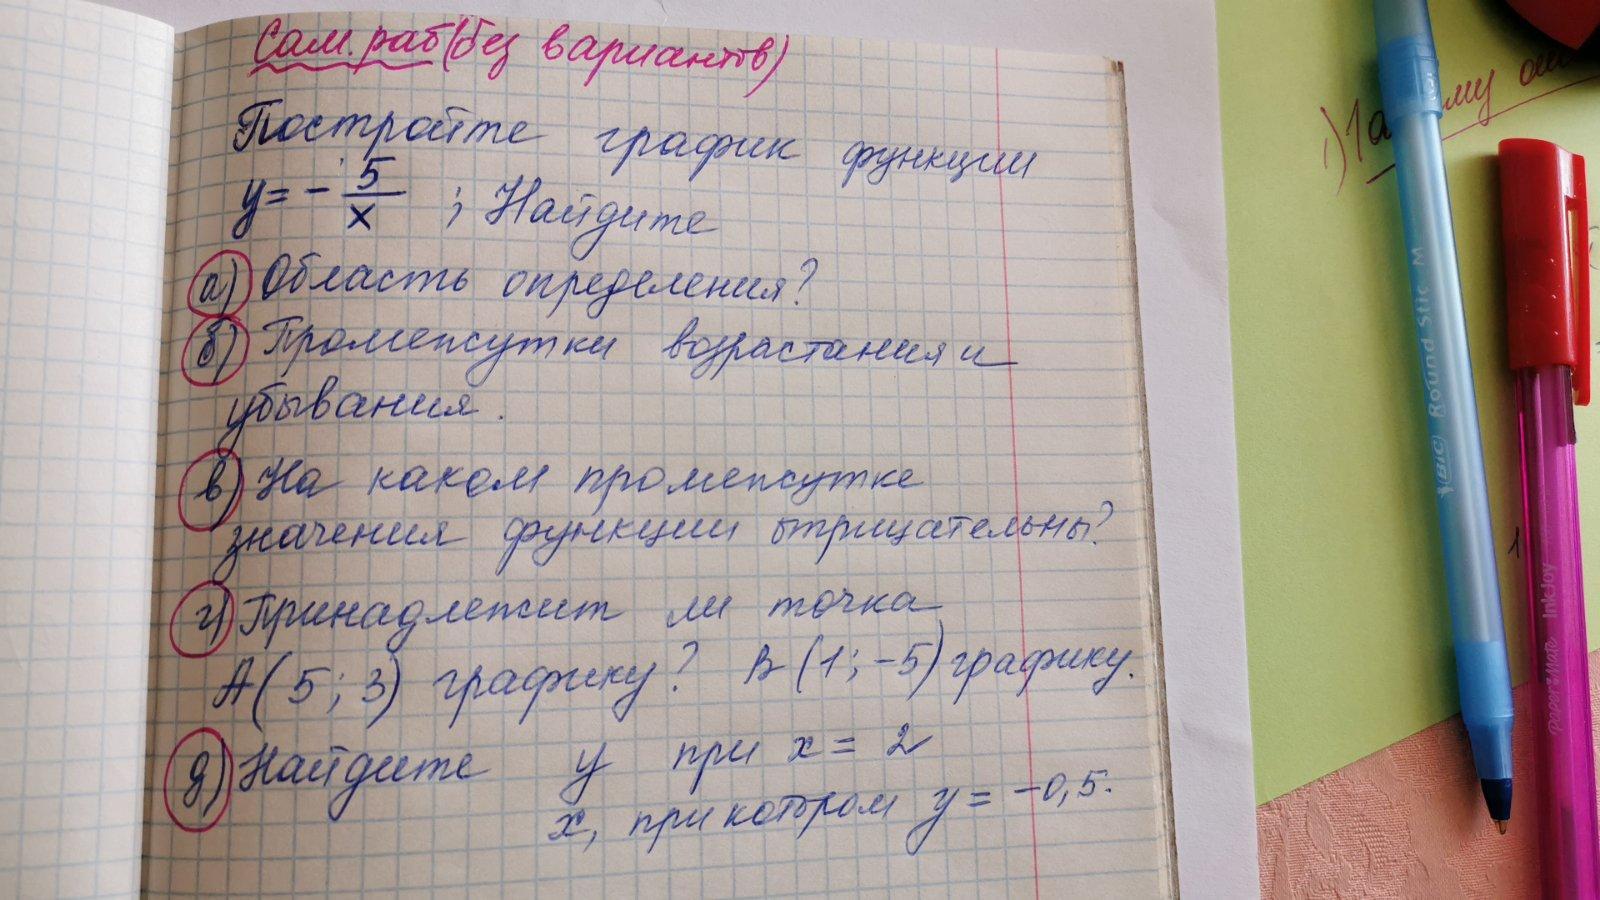 Сам. раб (без вариантов)
Постройте график функции
y = - 5/x ; Найдите
а) Область определения?
б) Промежутки возрастания и
убывания.
в) На каком промежутке
значения функции отрицательны?
г) Принадлежит ли точка
А(5; 3) графику? В(1; -5) графику.
д) Найдите y при x = 2
x, при котором y = -0,5.
1)
BIC Round Stic M
PaperMate InkJoy